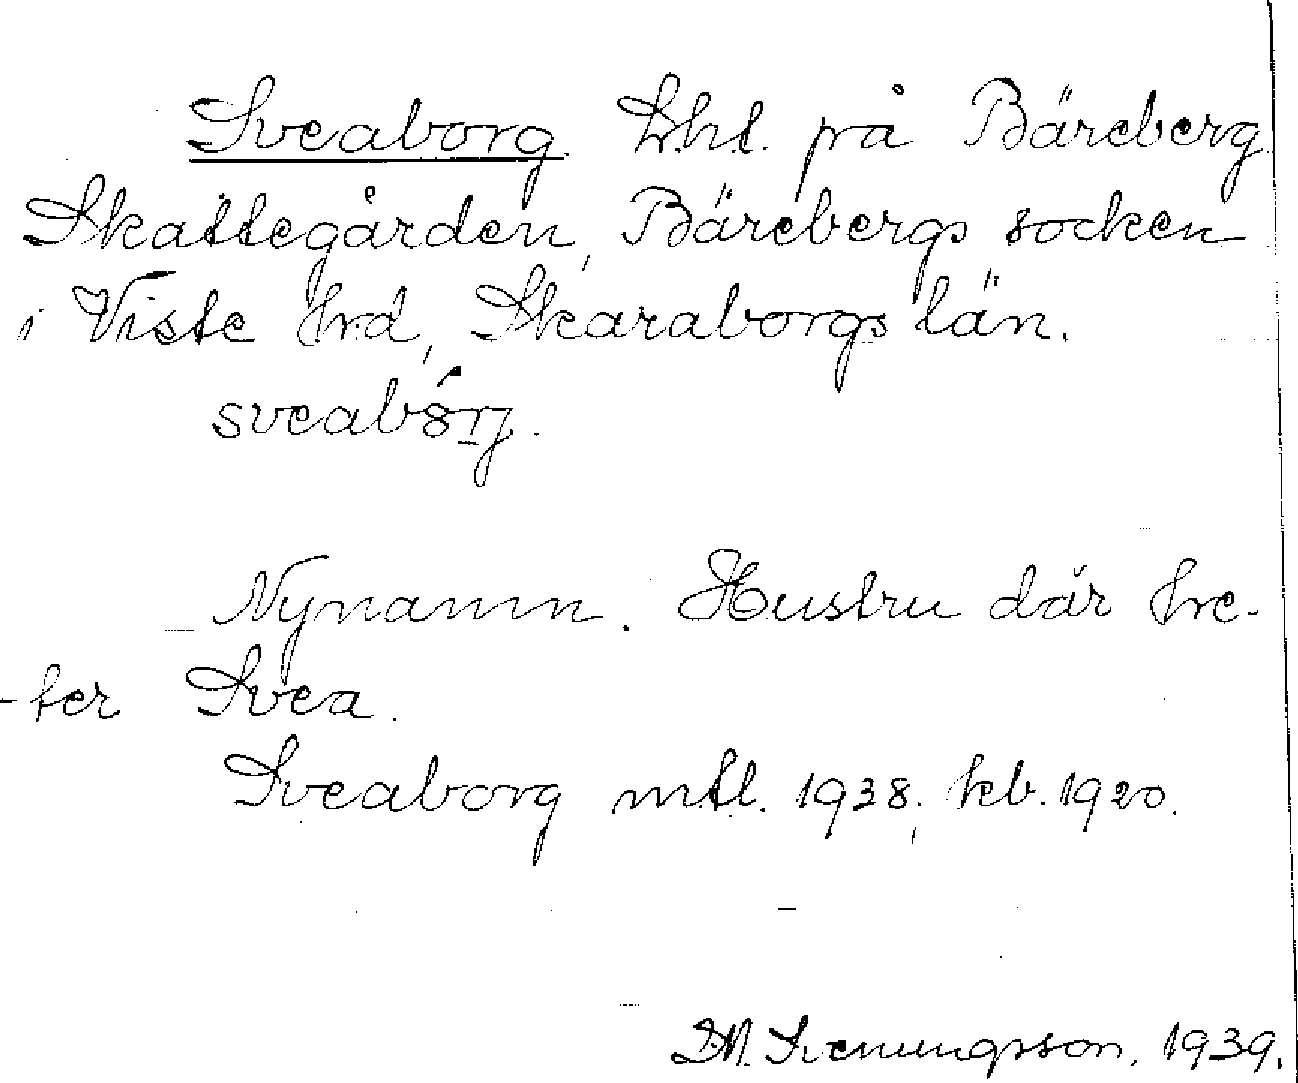 Sveaborg. Lht. på Bäreberg
Skattegården, Bärebergs socken
i Viste hrd, Skaraborgs län.
sveabórj.
Nynamn. Hustru där he-
-ter Svea.
Sveaborg mtl. 1938, kb. 1920.
D.N. Svenungsson. 1939.